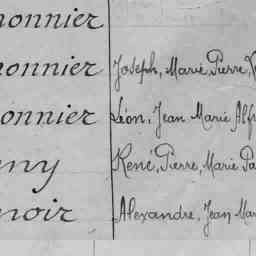 nonnier
nonnier Joseph, Marie, Pierre,
onnier Léon, Jean Marie Alf
ny René, Pierre, Marie Pa
noir Alexandre, Jean Mar